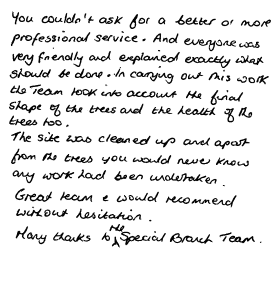 You couldn't ask for a better or more
professional service. And everyone was
very friendly and explained exactly what
should be done. In carrying out this work
the Team took into account the final
shape of the trees and the health of the
trees too.
The site was cleaned up and apart
from the trees you would never know
any work had been undertaken.
Great team & would recommend
without hesitation.
Many thanks to the Special Branch Team.